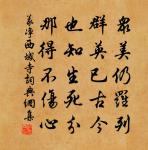 眾美仍羅列
群英已古今
也知生死分
那得不傷心
義淨西域寺詞典網集